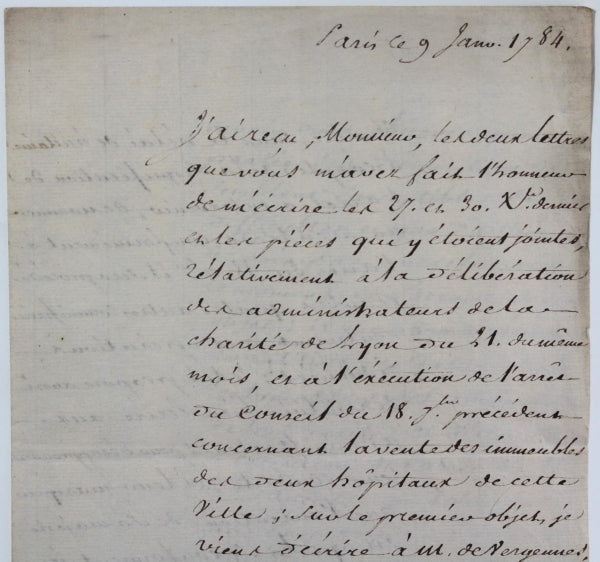 Paris le 9 Janv. 1784.
J'ai reçu, Monsieur, les deux lettres
que vous m'avez fait l'honneur
de m'écrire les 27. et 30. Xbre. dernier
et les piéces qui y étoient jointes,
rélativement à la délibération
des administrateurs de la
charité de Lyon du 21. du même
mois, et à l'éxécution de l'arrêt
du Conseil du 18. 7bre. précédent
concernant la vente des immeubles
des deux hôpitaux de cette
Ville ; sur le premier objet, je
viens d'écrire à M. de Vergennes,